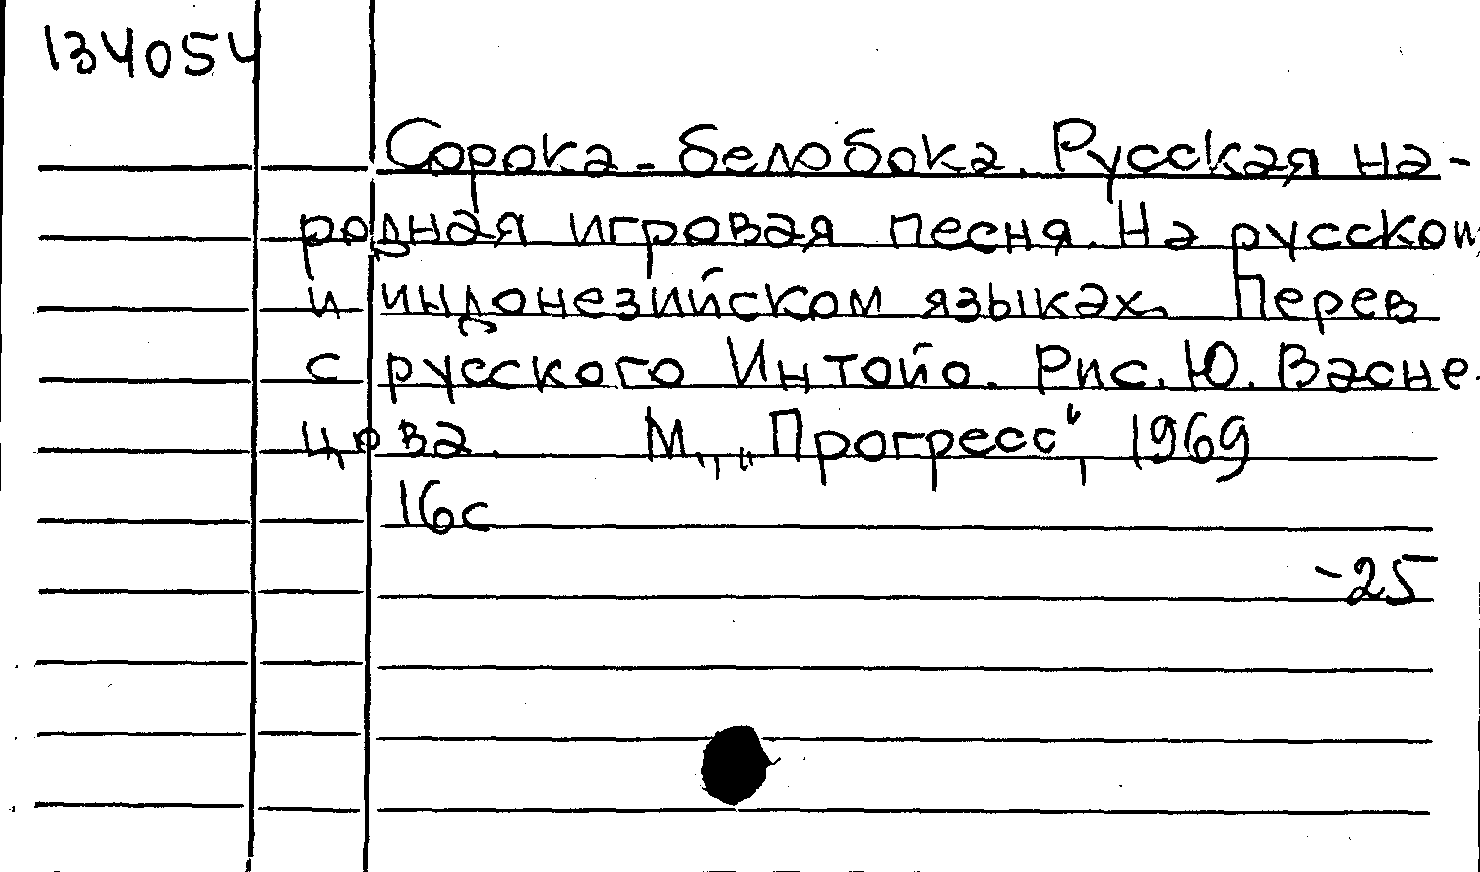 134054
Сорока-белобока. Русская на-
родная игровая песня. На русском
и индонезийском языках. Перев
с русского Интойо. Рис. Ю. Васне-
цова. М., „Прогресс“, 1969
16с
-25